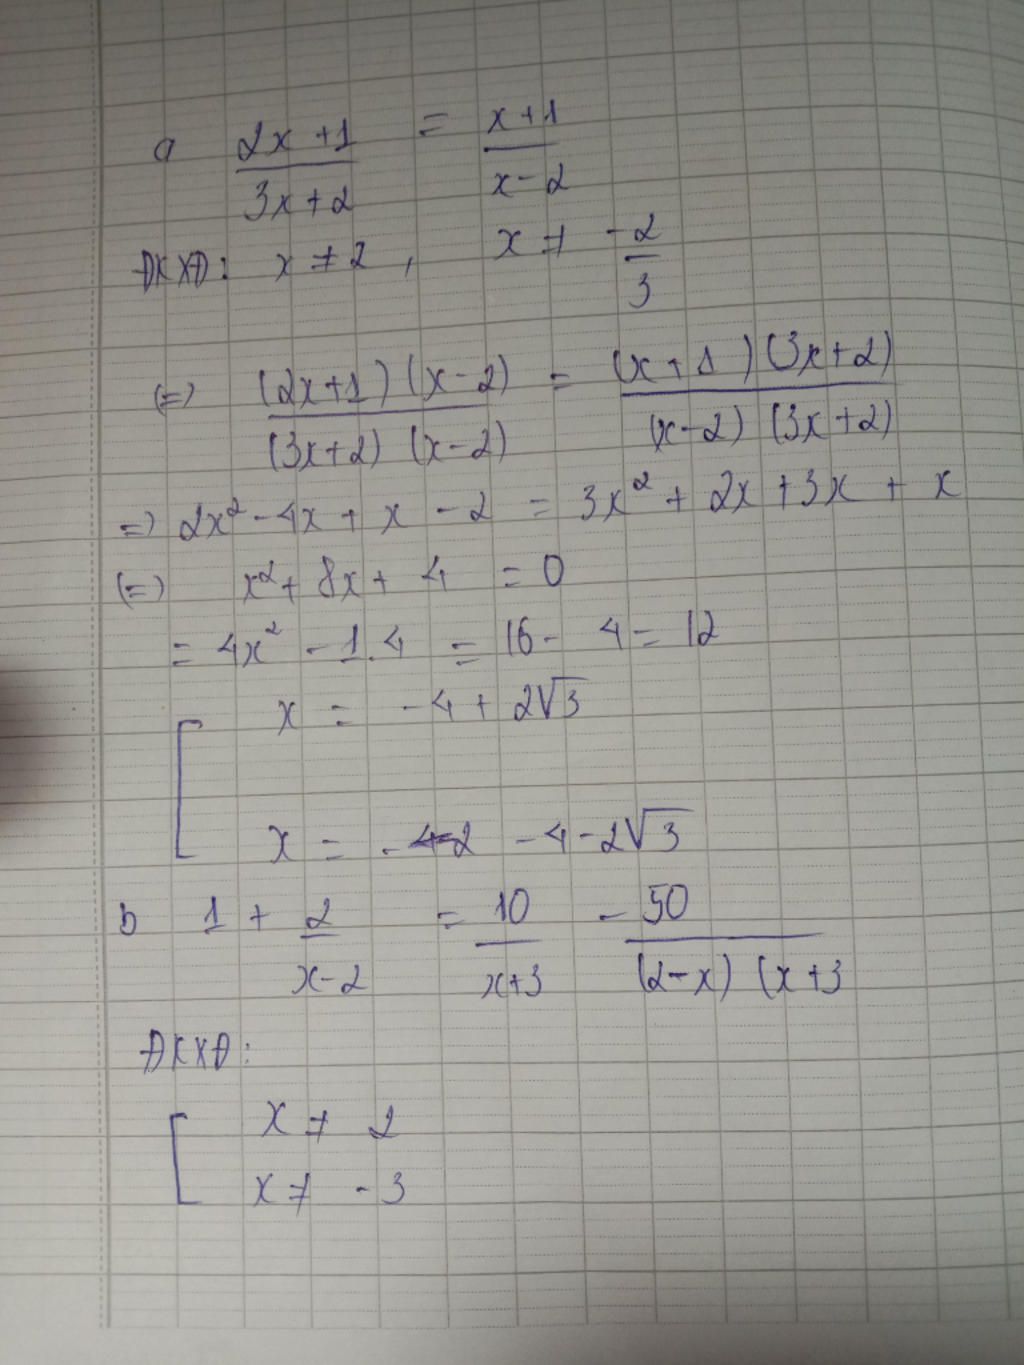 a (2x+1)/(3x+2) = (x+1)/(x-2)
ĐKXĐ: x ≠ 2, x ≠ -2/3
(=) ((2x+1)(x-2))/((3x+2)(x-2)) = ((x+1)(3x+2))/((x-2)(3x+2))
=) 2x² - 4x + x - 2 = 3x² + 2x + 3x + x
(=) x² + 8x + 4 = 0
= 4x² - 1.4 = 16 - 4 = 12
[ x = -4 + 2√3
x = -4-2 -4-2√3
b 1 + 2/(x-2) = 10/(x+3) - 50/((2-x)(x+3
ĐKXĐ:
[ x ≠ 2
x ≠ -3